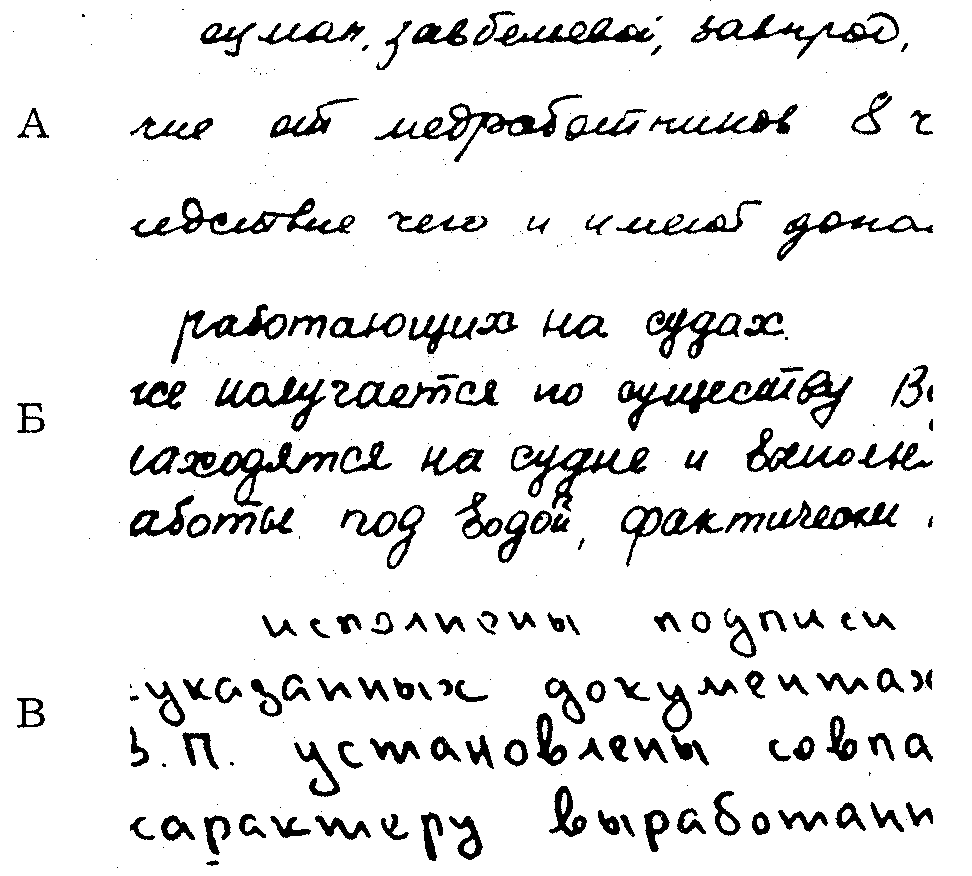 оцман, завбельевой, завпрод,
А
чие от медработников 8 ч
ледствие чего и имеют допол
работающих на судах.
же получается по существу Во
Б
аходятся на судне и выполня
аботы под водой, фактически
исполнены подписи
указанных документах
В
В.П. установлены совпа
характеру выработанн